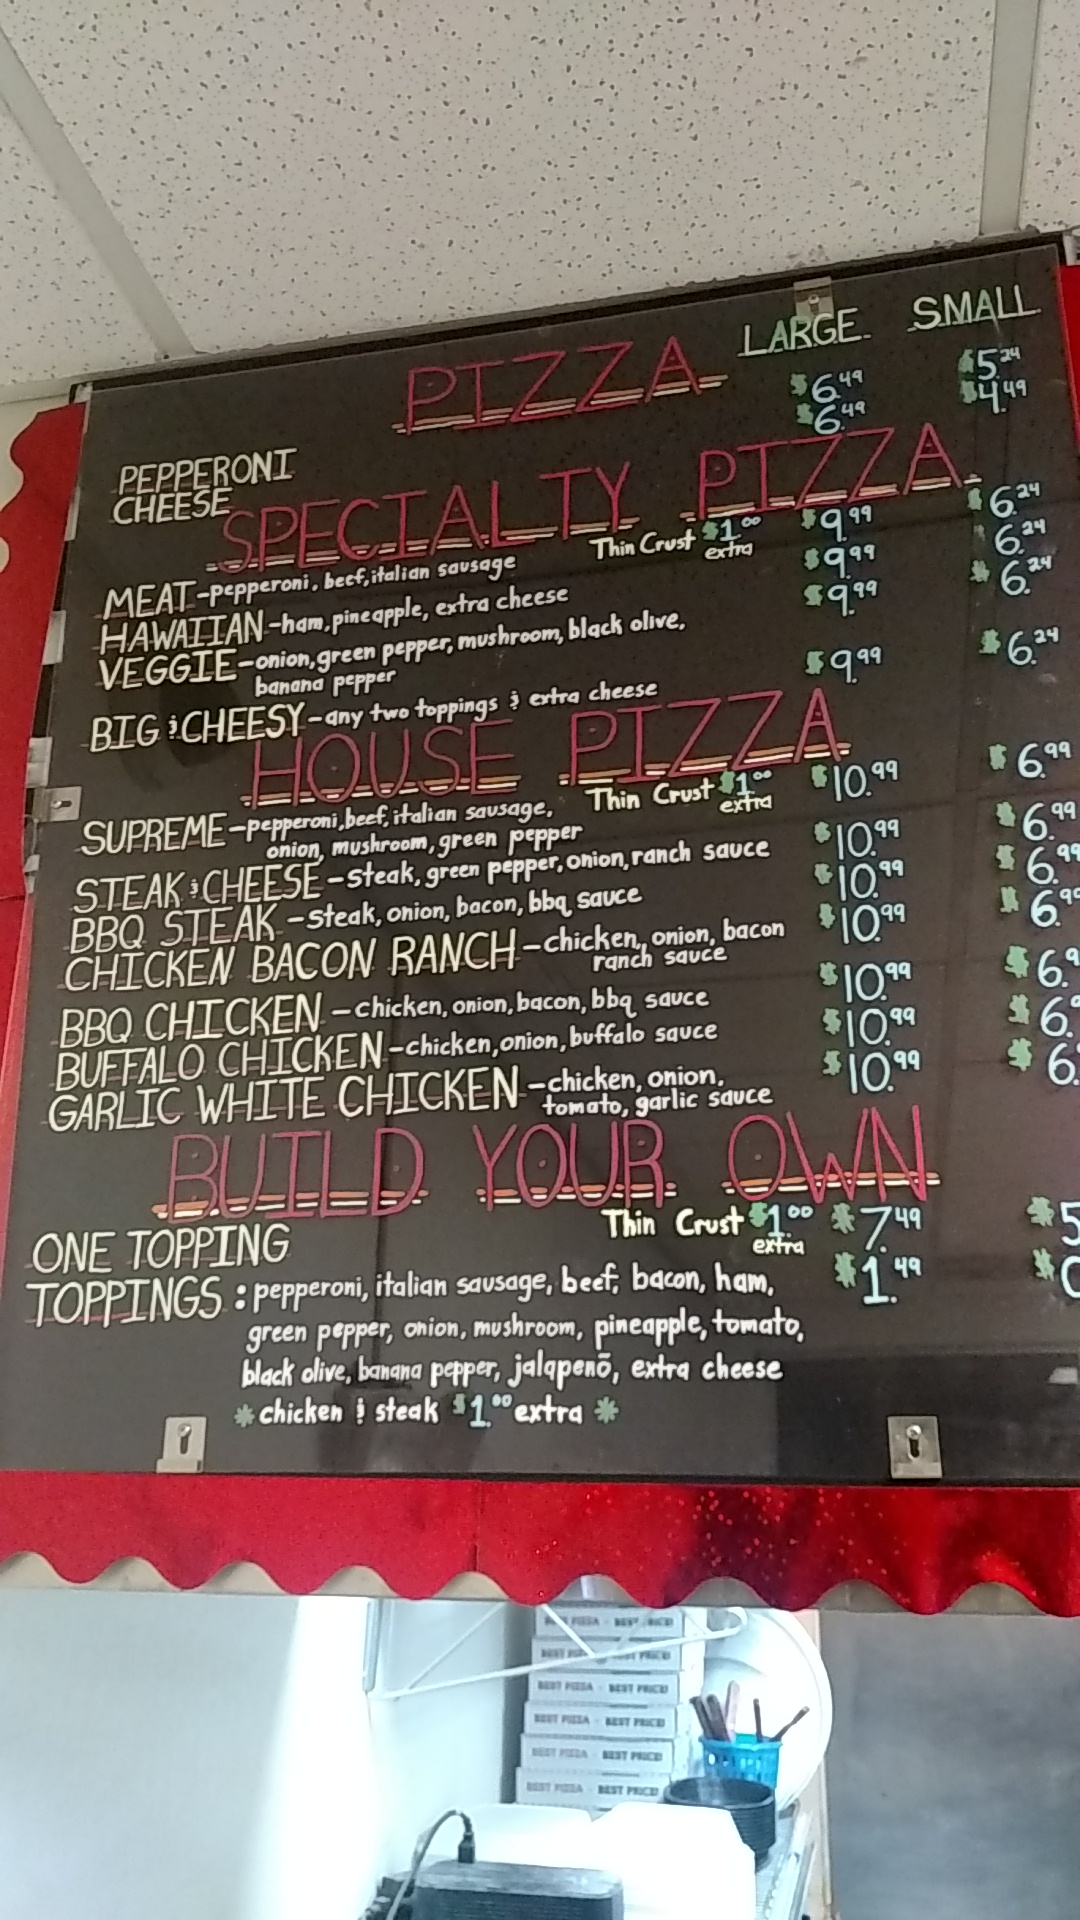 PIZZA LARGE SMALL
PEPPERONI $6.49 $5.24
CHEESE $6.49 $4.49
SPECIALTY PIZZA
Thin Crust $1.00 extra
MEAT-pepperoni, beef, italian sausage $9.99 $6.24
HAWAIIAN-ham, pineapple, extra cheese $9.99 6.24
VEGGIE-onion, green pepper, mushroom, black olive, $9.99 $6.24
banana pepper
BIG & CHEESY-any two toppings & extra cheese $9.99 $6.24
HOUSE PIZZA
Thin Crust $1.00 extra
SUPREME-pepperoni, beef, italian sausage, $10.99 $6.99
onion, mushroom, green pepper
STEAK & CHEESE-steak, green pepper, onion, ranch sauce $10.99 $6.99
BBQ STEAK-steak, onion, bacon, bbq sauce $10.99 $6.99
CHICKEN BACON RANCH-chicken, onion, bacon $10.99 $6.99
ranch sauce
BBQ CHICKEN-chicken, onion, bacon, bbq sauce $10.99 $6.9
BUFFALO CHICKEN-chicken, onion, buffalo sauce $10.99 $6.
GARLIC WHITE CHICKEN-chicken, onion, $10.99 $6.
tomato, garlic sauce
BUILD YOUR OWN
Thin Crust $1.00 extra
ONE TOPPING $7.49 $5
TOPPINGS: pepperoni, italian sausage, beef, bacon, ham, $1.49 $0
green pepper, onion, mushroom, pineapple, tomato,
black olive, banana pepper, jalapenō, extra cheese
*chicken & steak $1.00 extra*
BEST PIZZA - BEST PRICE!
BEST PIZZA - BEST PRICE!
BEST PIZZA - BEST PRICE!
BEST PIZZA - BEST PRICE!
BEST PIZZA - BEST PRICE!
BEST PIZZA - BEST PRICE!